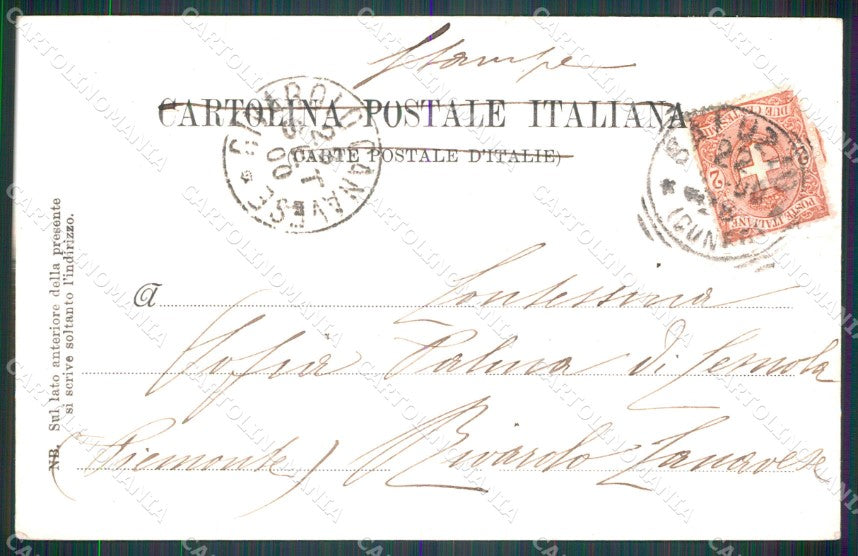 Stampe
CARTOLINA POSTALE ITALIANA
(CARTE POSTALE D'ITALIE)
RIVAROLO CANAVESE
OTT
00
SALUZZO
(CUNEO)
POSTE ITALIANE
DUE CENT
2
NB. Sul lato anteriore della presente
si scrive soltanto l'indirizzo.
A Contessina
Sofia Palma di Cesnola
(Piemonte) Rivarolo Canavese
CARTOLINOMANIA